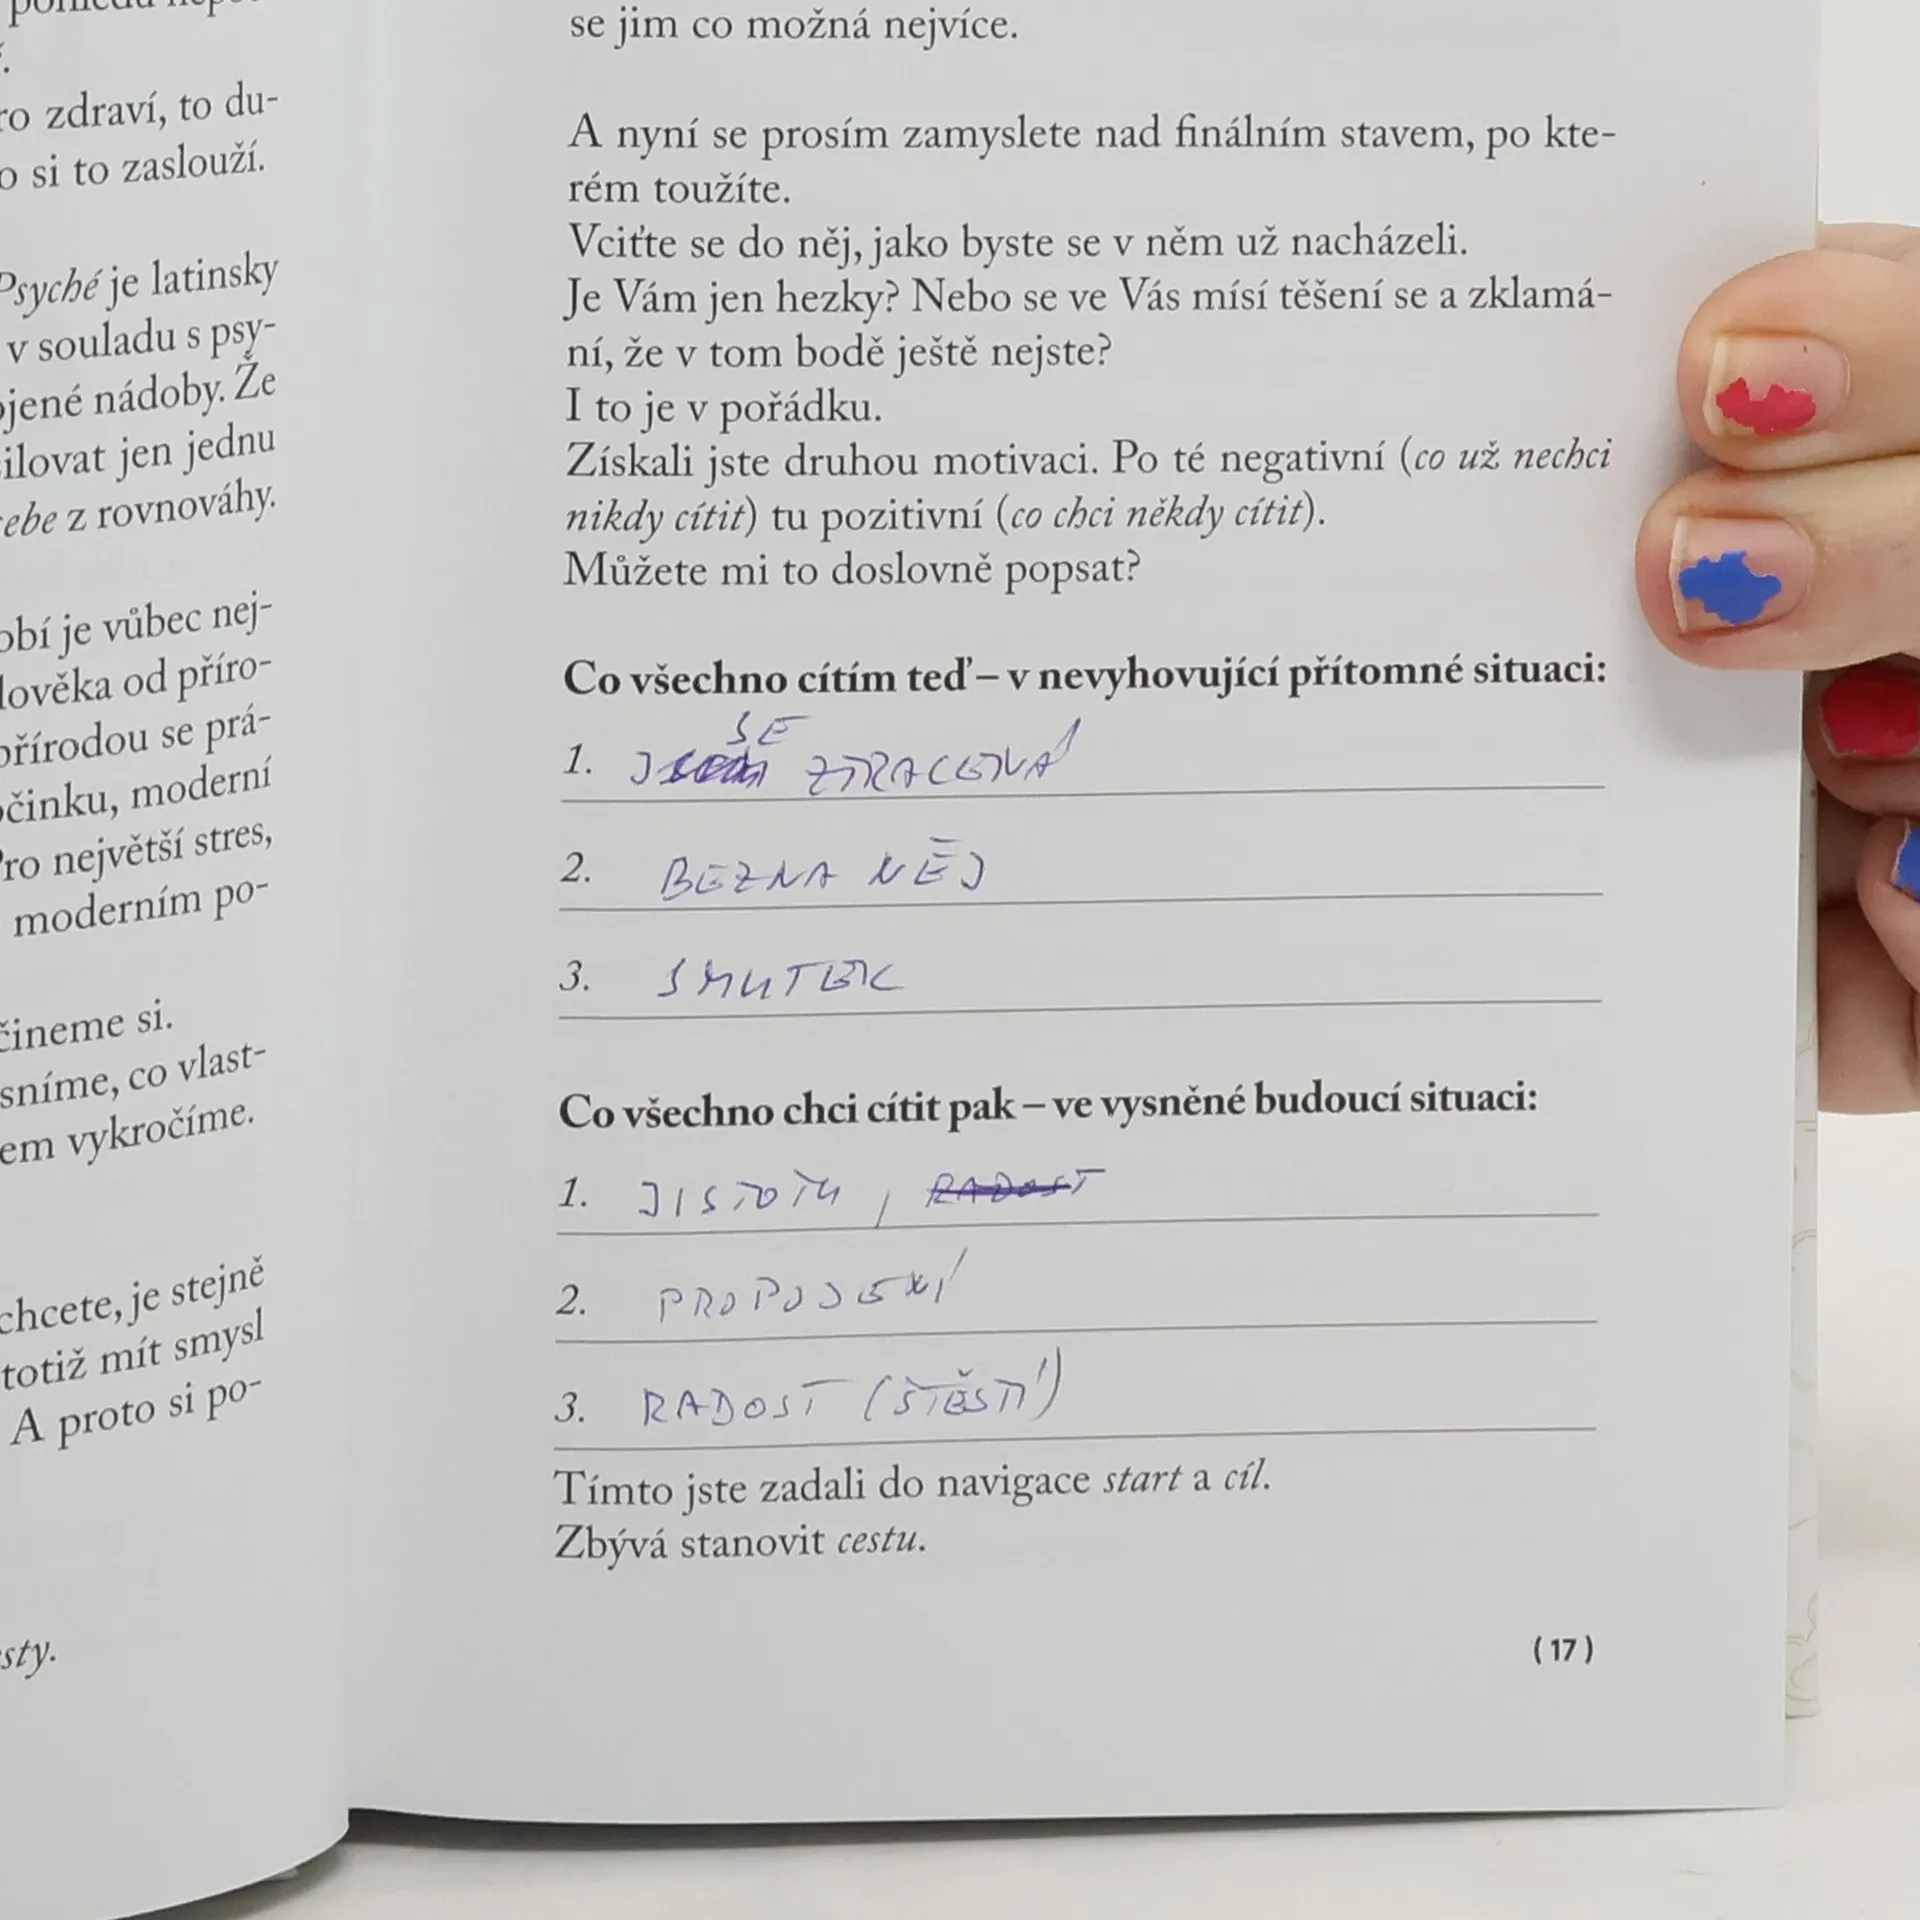 ro zdraví, to du-
o si to zaslouží.
Psyché je latinsky
v souladu s psy-
ojené nádoby. Že
ilovat jen jednu
sebe z rovnováhy.
obí je vůbec nej-
lověka od příro-
přírodou se prá-
očinku, moderní
Pro největší stres,
moderním po-
čineme si.
sníme, co vlast-
em vykročíme.
chcete, je stejně
totiž mít smysl
A proto si po-
sty.
se jim co možná nejvíce.
A nyní se prosím zamyslete nad finálním stavem, po kte-
rém toužíte.
Vciťte se do něj, jako byste se v něm už nacházeli.
Je Vám jen hezky? Nebo se ve Vás mísí těšení se a zklamá-
ní, že v tom bodě ještě nejste?
I to je v pořádku.
Získali jste druhou motivaci. Po té negativní (co už nechci
nikdy cítit) tu pozitivní (co chci někdy cítit).
Můžete mi to doslovně popsat?
Co všechno cítím teď – v nevyhovující přítomné situaci:
1. SE ZTRACENÁ
2. BEZNADĚJ
3. SMUTEK
Co všechno chci cítit pak – ve vysněné budoucí situaci:
1. JISTOTU, RADOST
2. PROPOJENÍ
3. RADOST (ŠTĚSTÍ)
Tímto jste zadali do navigace start a cíl.
Zbývá stanovit cestu.
(17)